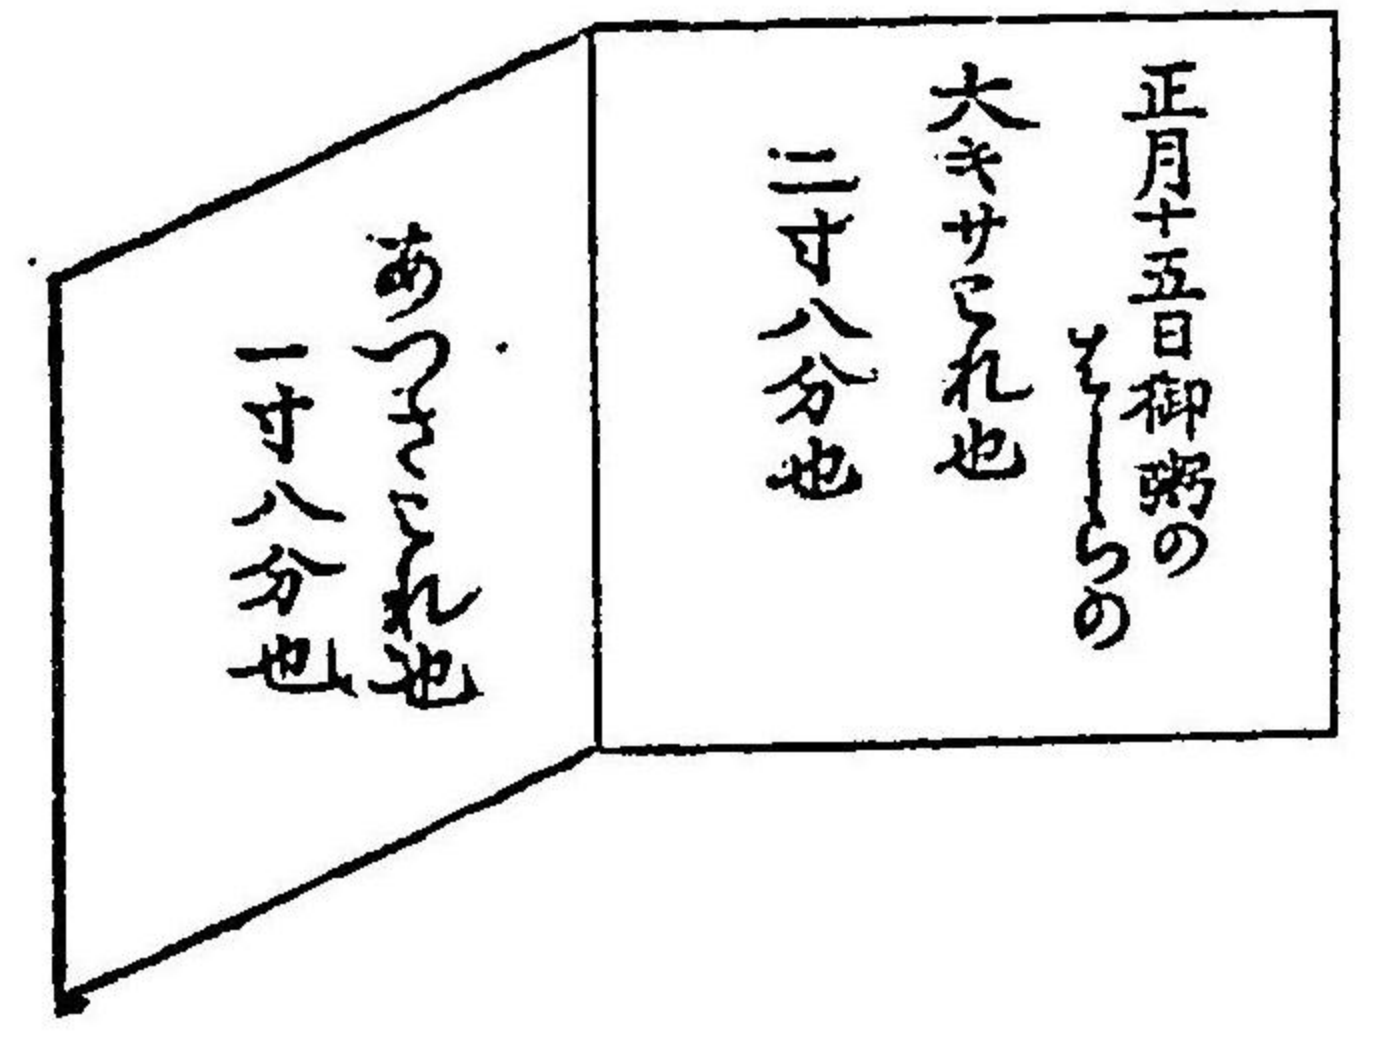 正月十五日御粥の
はしらの
大キサこれ也
二寸八分也
あつさこれ也
一寸八分也